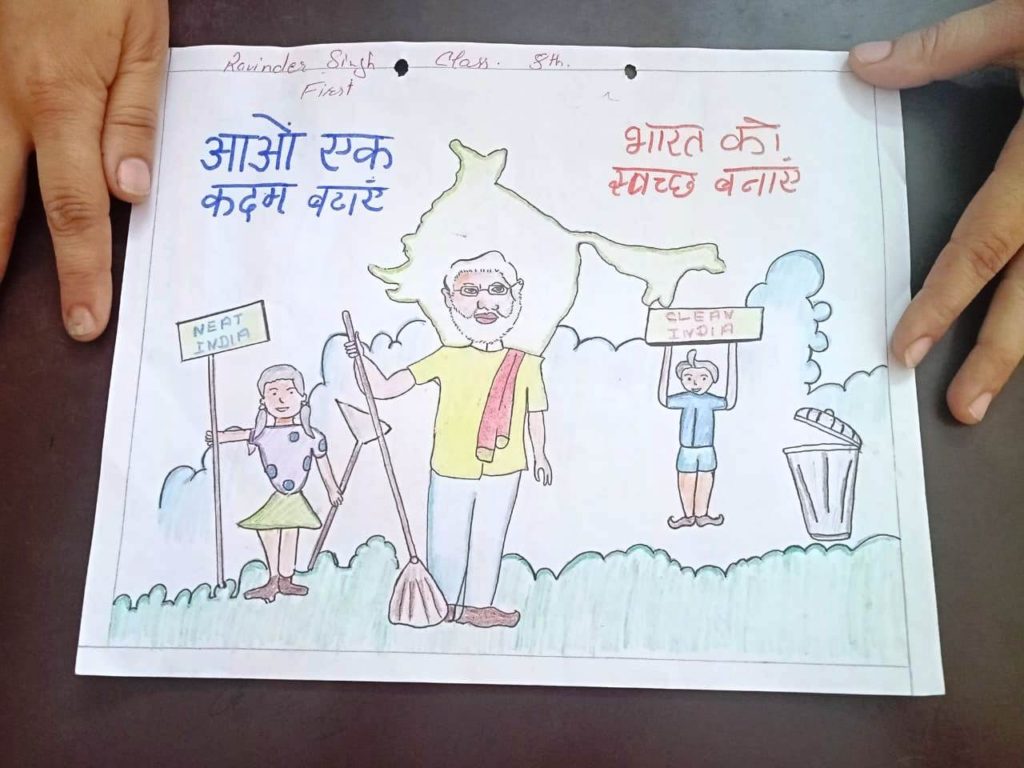 Ravinder Singh Class. 8th.
First
आओं एक
कदम बढाएं
भारत को
स्वच्छ बनाएं
NEAT
INDIA
CLEAN
INDIA